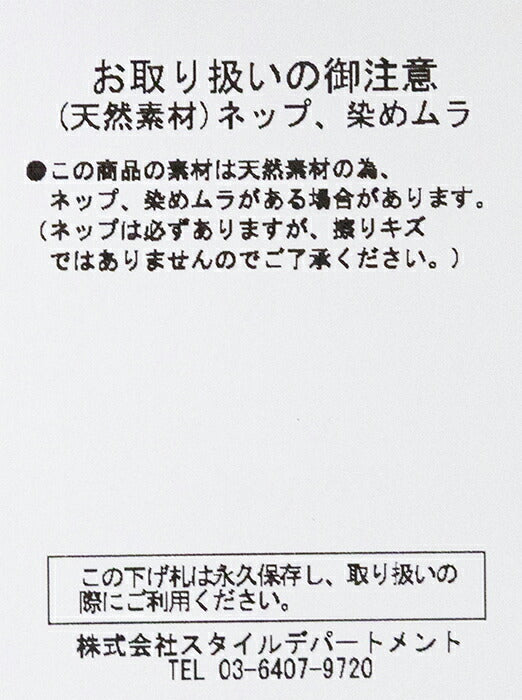 お取り扱いの御注意
(天然素材)ネップ、染めムラ
●この商品の素材は天然素材の為、
ネップ、染めムラがある場合があります。
(ネップは必ずありますが、擦りキズ
ではありませんのでご了承ください。)
この下げ札は永久保存し、取り扱いの
際にご利用ください。
株式会社スタイルデパートメント
TEL 03-6407-9720